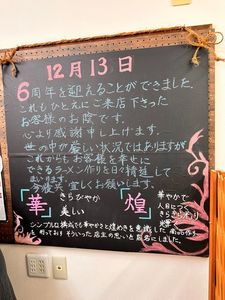 12月13日
6周年を迎えることができました。
これもひとえにご来店下さった
お客様のお陰です。
心より感謝申し上げます。
世の中が厳しい状況ではありますが
これからもお客様を幸せに
できるラーメン作りを日々精進して
まいります。
今後共宜しくお願いします。
「華」きらびやか
美しい
「煌」華やかで
人目につく
きらきら光り
シンプルな構成でも華やかさと煌めきを意識した